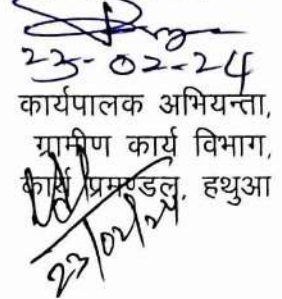 23-02-24
कार्यपालक अभियन्ता,
ग्रामीण कार्य विभाग,
कार्य प्रमण्डल, हथुआ
23/02/24